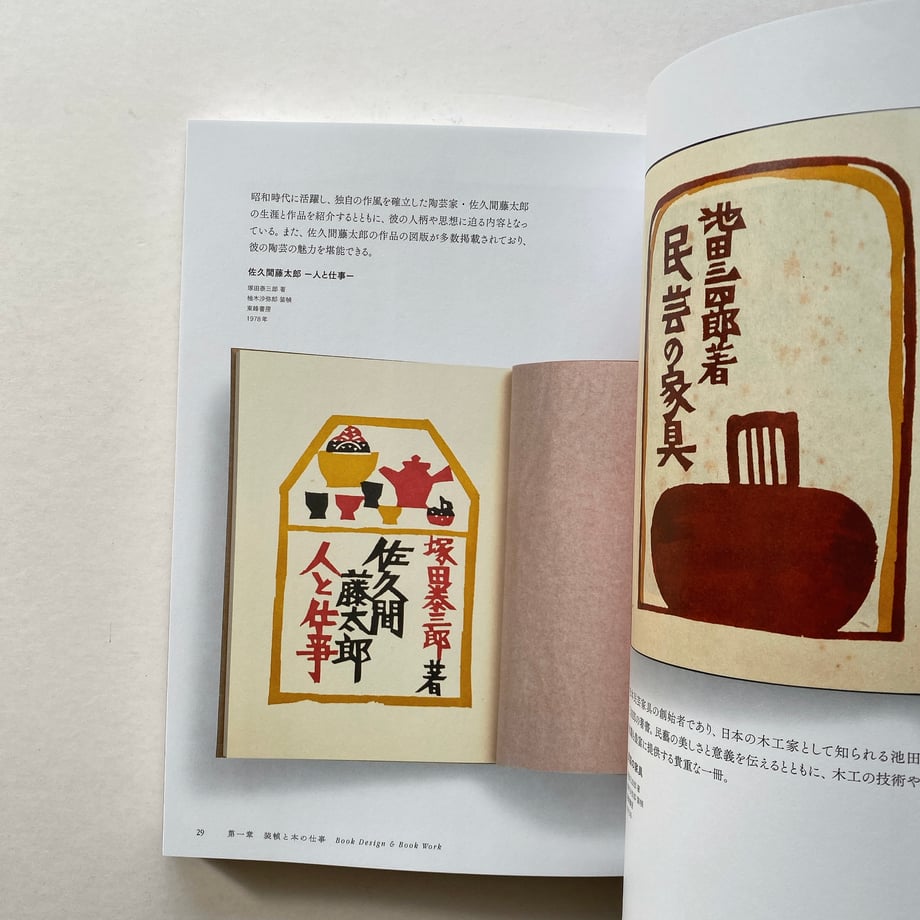 昭和時代に活躍し、独自の作風を確立した陶芸家・佐久間藤太郎
の生涯と作品を紹介するとともに、彼の人柄や思想に迫る内容となっ
ている。また、佐久間藤太郎の作品の図版が多数掲載されており、
彼の陶芸の魅力を堪能できる。
佐久間藤太郎 ー人と仕事ー
塚田泰三郎 著
柚木沙弥郎 装幀
東峰書房
1978年
塚田泰三郎 著
佐久間
藤太郎
人と仕事
29 第一章 装幀と本の仕事 Book Design & Book Work
池田三四郎著
民芸の家具
民芸家具の創始者であり、日本の木工家として知られる池田
の著書。民藝の美しさと意義を伝えるとともに、木工の技術や
に提供する貴重な一冊。
の家具